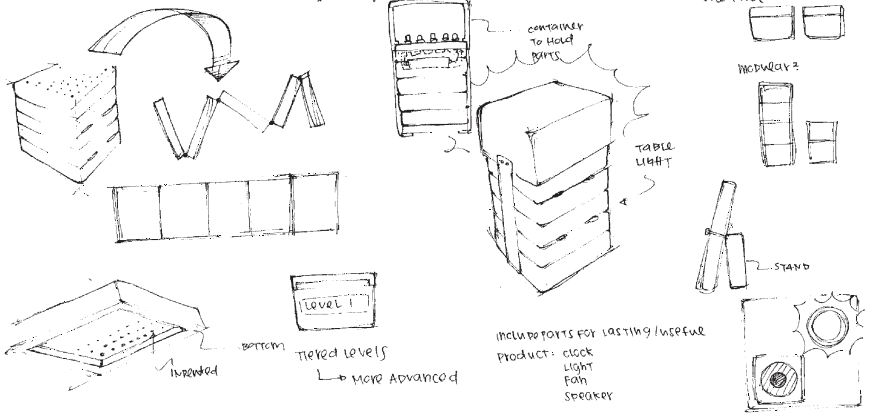 container
To Hold
Parts
Modular?
Table
Light
Stand
Level 1
Bottom
Indented
Tiered Levels
More Advanced
include parts for lasting/useful
product: clock
Light
Fan
speaker